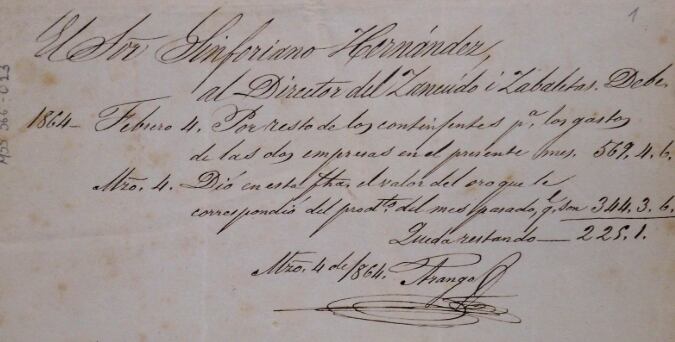 1
El Sor Sinforiano Hernández,
al Director del Zancudo i Zabaletas. Debe
1864 - Febrero 4. Por resto de los continjentes pa. los gastos
de las dos empresas en el presente mes. 569.4.6.
Mzo. 4. Dió en esta fha. el valor del oro que le
correspondió del prodto. del mes pasado, q. son 344.3.6.
Queda restando — 225.1.
Mzo. 4 de 1864. Arango